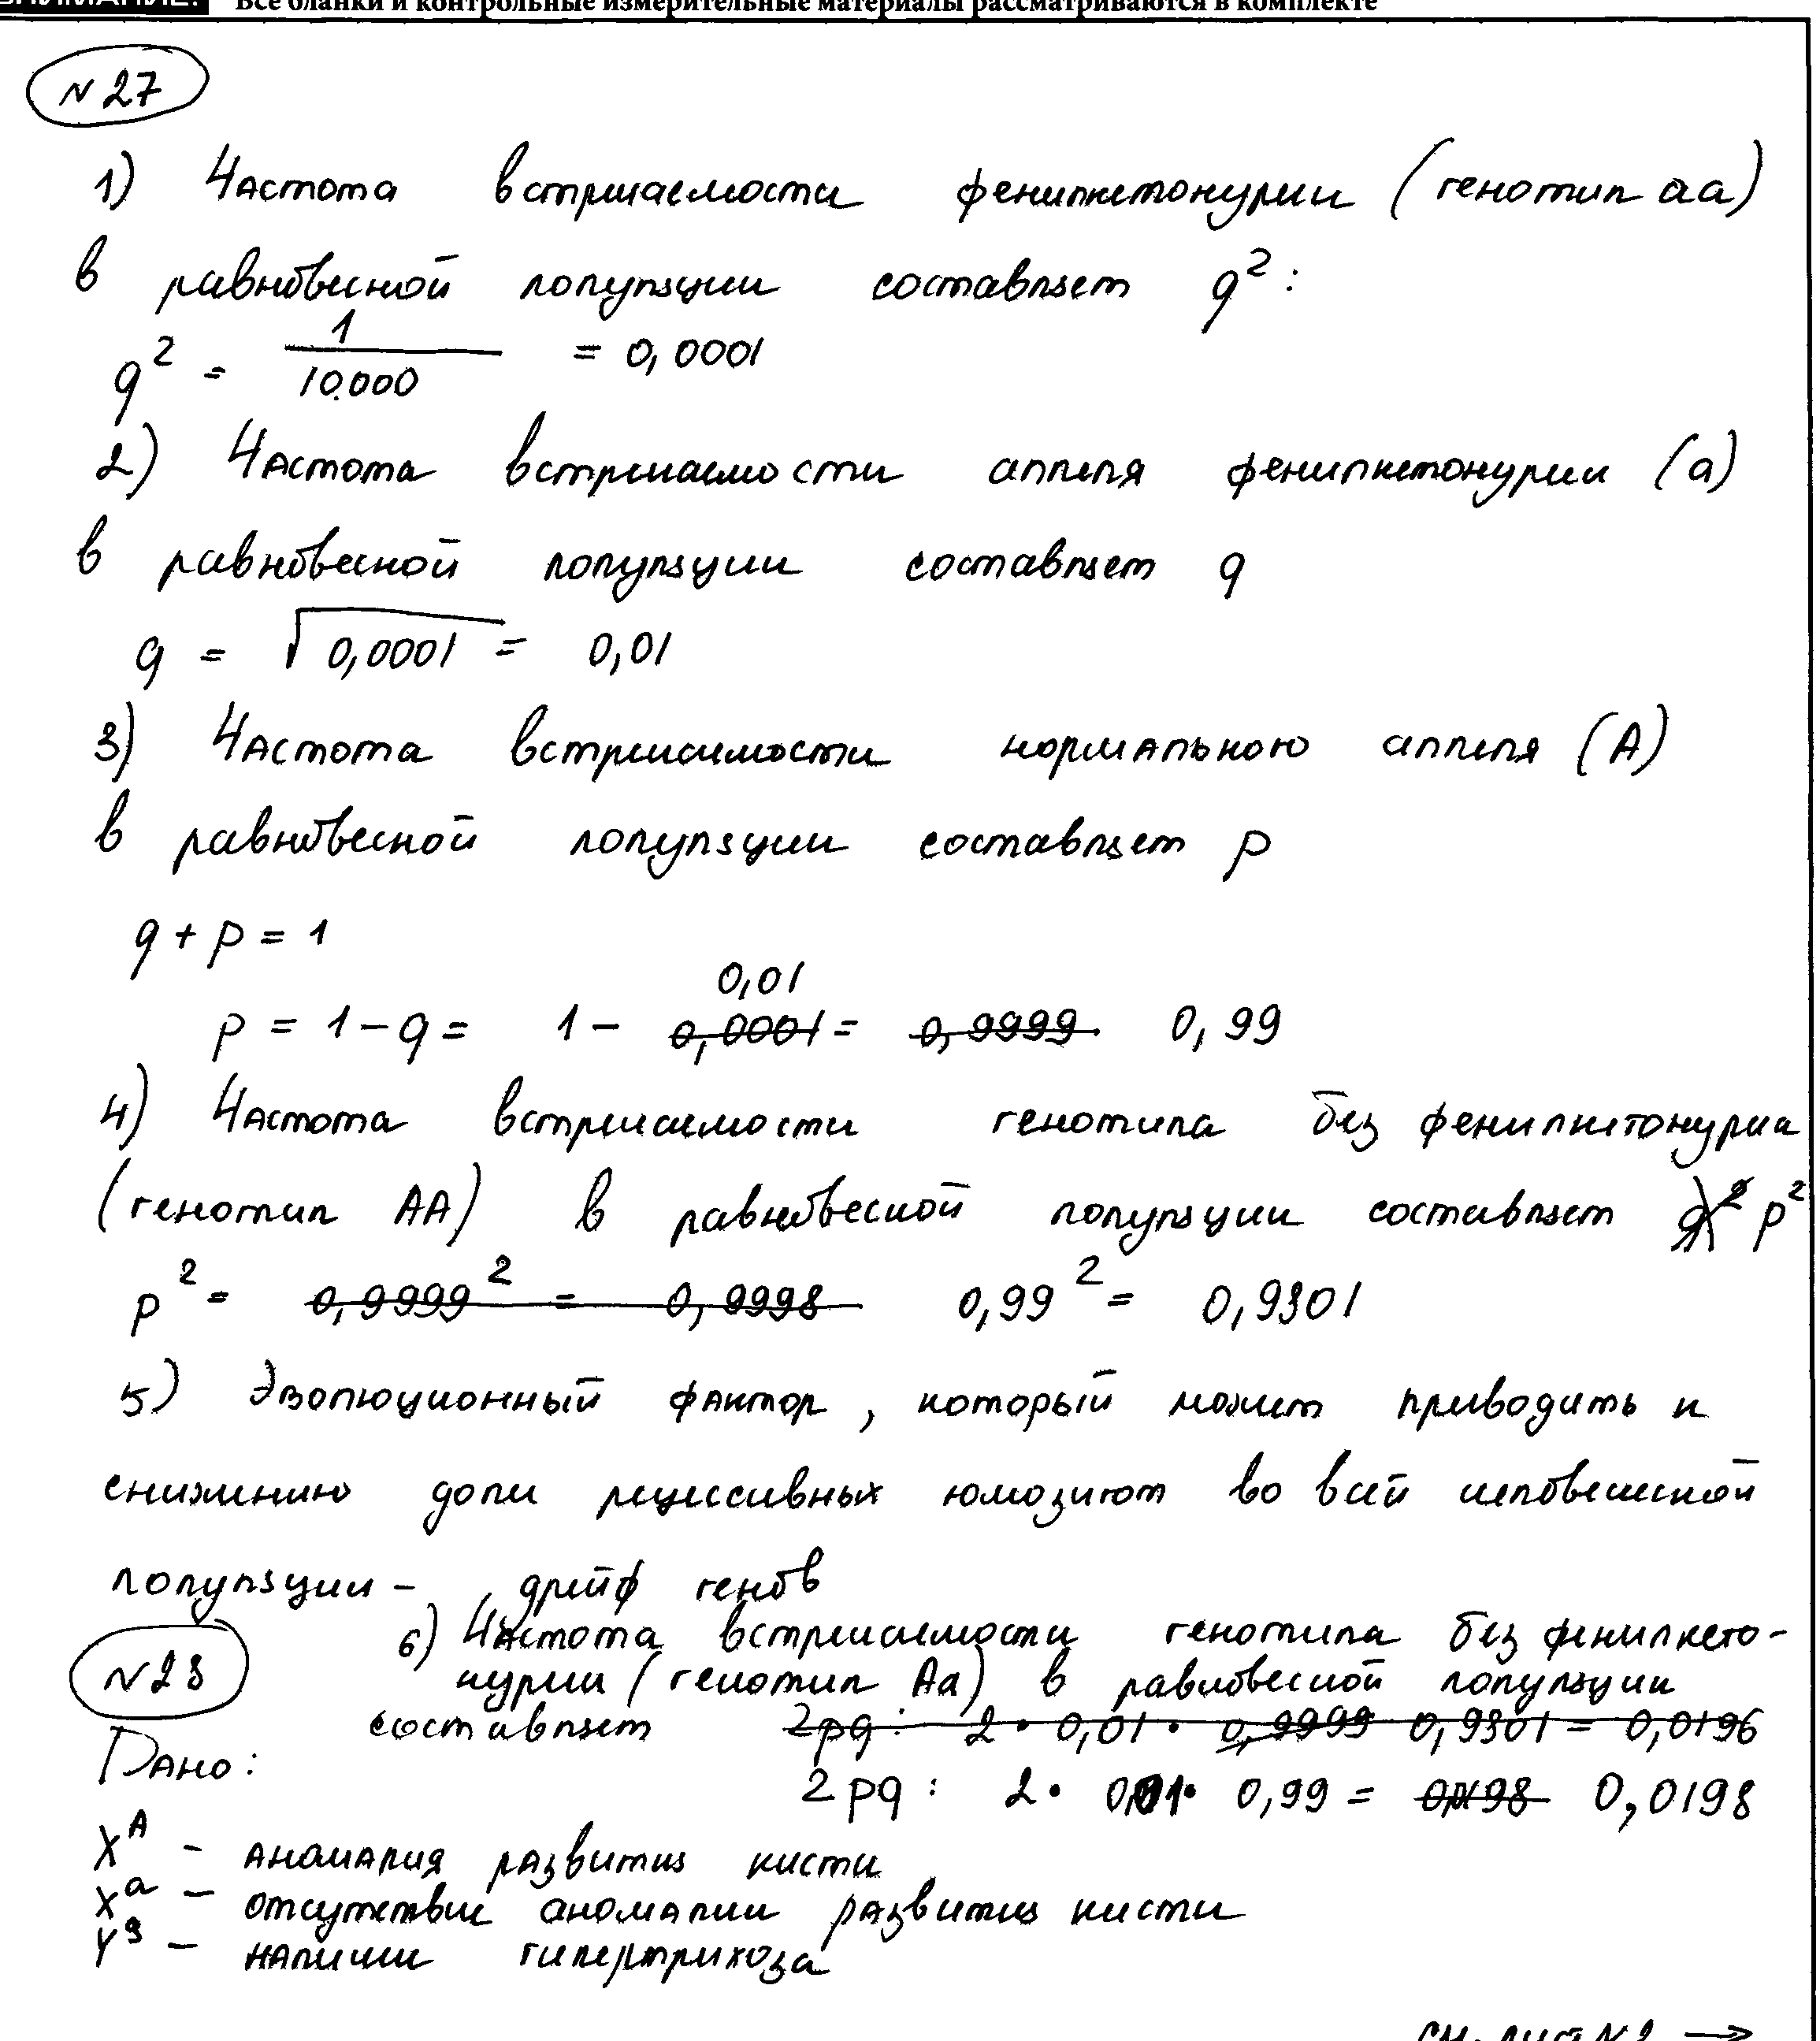 ВНИМАНИЕ! Все бланки и контрольные измерительные материалы рассматриваются в комплекте
№ 27
1) Частота встречаемости фенилкетонурии (генотип аа)
в равновесной популяции составляет q²:
q² = 1/10.000 = 0,0001
2) Частота встречаемости аллеля фенилкетонурии (а)
в равновесной популяции составляет q
q = √0,0001 = 0,01
3) Частота встречаемости нормального аллеля (А)
в равновесной популяции составляет р
q + p = 1
0,01
p = 1 - q = 1 - 0,0001 = 0,9999 0,99
4) Частота встречаемости генотипа без фенилкетонурии
(генотип АА) в равновесной популяции составляет q² p²
p² = 0,9999² = 0,9998 0,99² = 0,9801
5) Эволюционный фактор, который может приводить к
снижению доли рецессивных гомозигот во всей человеческой
популяции - дрейф генов
6) Частота встречаемости генотипа без фенилкето-
№ 28
нурии (генотип Аа) в равновесной популяции
составляет 2pq: 2 · 0,01 · 0,9999 0,9801 = 0,0196
Дано:
2pq: 2 · 0,01 · 0,99 = 0,0198
X^A - аномалия развития кисти
X^a - отсутствие аномалии развития кисти
Y^g - наличие гипертрихоза
см. лист №2 →